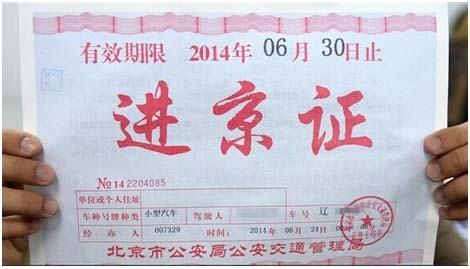 有效期限 2014年 06月 30日止
进京证
№ 14 2204085
单位或个人住址
车种号牌种类 小型汽车 驾驶人 车号 辽
经办人 007329 时间 2014 年 06 月 24日
北京市公安局公安交通管理局